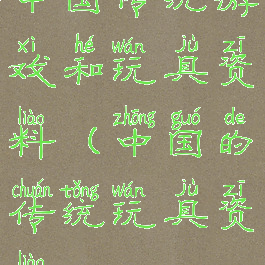 中国传统游
xì hé wán jù zī
戏和玩具资
liào zhōng guó de
料（中国的
chuán tǒng wán jù zī
传统玩具资
liào